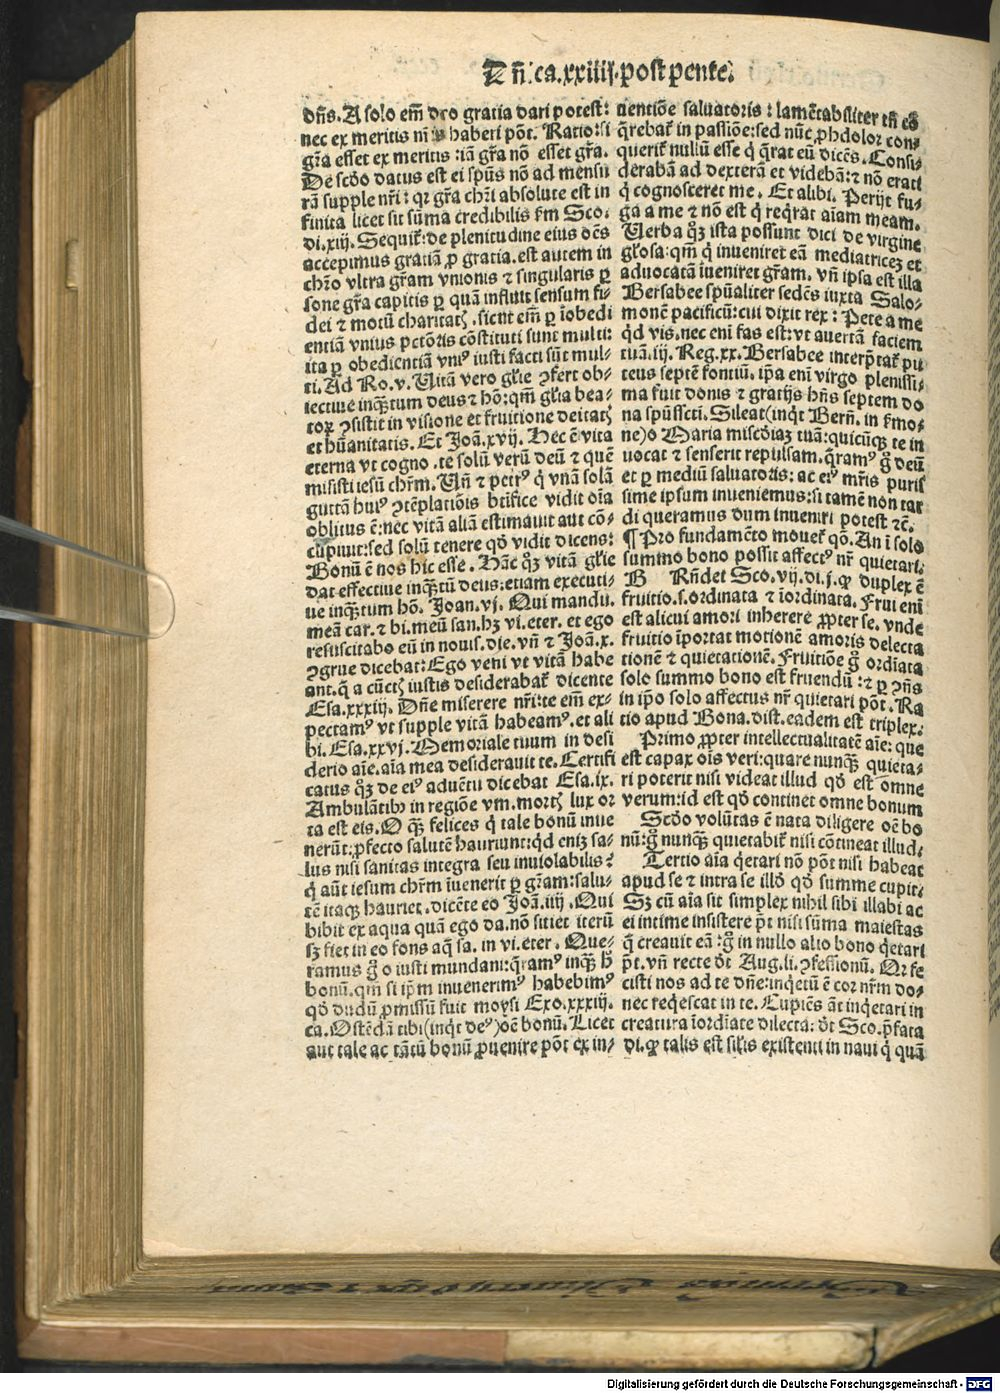 Dñica.xxiiij.post pente.
dñs. A solo em̄ deo gratia dari potest:
nec ex meritis nr̄is haberi pōt. Ratio: si
gr̄a esset ex meritis: iā gr̄a nō esset gr̄a.
De scďo datus est ei spūs nō ad mensu
rā supple nr̄i: qr gr̄a chr̄i absolute est in
finita licet sit sūma credibilis ẜm Sco.
di.xiij. Sequit̄: de plenitudine eius oēs
accepimus gratiā ꝓ gratia. est autem in
chr̄o vltra gr̄am vnionis ⁊ singularis ꝑ
sone gr̄a capitis ꝑ quā influit sensum fi-
dei ⁊ motū charitatꝭ. sicut em̄ ꝑ īobedi
entiā vnius pctōris cōstituti sunt multi:
ita ꝑ obedientiā vniꝰ iusti facti sūt mul-
ti. Ad Ro.v. Uitā vero gl̄ie ꝯfert ob-
iectiue inqȝtum deus ⁊ hō: qm̄ gl̄ia bea-
torꝝ ꝯsistit in visione et fruitione deitatꝭ
et hūanitatis. Et Joā.xvij. Hec ē vita
eterna vt cogno. te solū verū deū ⁊ quē
misisti iesū chr̄m. Uñ ⁊ petrꝰ q̄ vnā solā
guttā huiꝰ ꝯtēplatiōis btīfice vidit oīa
oblitus ē: nec vitā aliā estimauit aut cō-
cupiuit: sed solū tenere qď vidit dicens:
Bonū ē nos hic esse. Hāc qȝ vitā gl̄ie
dat effectiue inqȝtū deus: etiam executi-
ue inqȝtum hō. Joan.vj. Qui mandu.
meā car. ⁊ bi. meū san. hȝ vi. eter. et ego
resuscitabo eū in nouis. die. vñ ⁊ Joā.x.
ꝯgrue dicebat: Ego veni vt vitā habe
ant. q̄ a cūctꝭ iustis desiderabat̄ dicente
Esa.xxxiij. Dñe miserere nr̄i: te em̄ ex-
pectamꝰ vt supple vitā habeamꝰ. et ali
bi. Esa.xxvj. Memoriale tuum in desi
derio aīe. aīa mea desiderauit te. Certifi
catus qȝ de eiꝰ aduētu dicebat Esa.ix.
Ambulātibꝰ in regiōe vm. mortꝭ lux or
ta est eis. O qȝ felices q̄ tale bonū inue
nerūt: ꝓfecto salutē hauriunt: qd enīȝ sa-
lus nisi sanitas integra seu inuiolabilis?
q̄ aūt iesum chr̄m īuenerit ꝑ gr̄am: salu-
tē itaqȝ hauriet. dicēte eo Joā.iiij. Qui
bibit ex aqua quā ego da. nō sitiet iterū
sȝ fiet in eo fons aq̄ sa. in vi. eter. Que-
ramus g̊ o iusti mundani: q̄ramꝰ inqȝ h̄
bonū. qm̄ si ip̄m inuenerimꝰ habebimꝰ
qď dudū ꝓmissū fuit moysi Exo.xxxiij.
ca. Ostēdā tibi (inq̄t deꝰ) oē bonū. Licet
aut tale ac tātū bonū ꝓuenire pōt ex in-
uentiōe saluatoris: lamētabiliter tñ eū
q̄rebat̄ in passiōe: sed nūc ꝓhdolor con-
querit̄ nullū esse q̄ q̄rat eū dicēs. Consi-
derabā ad dexterā et videbā: ⁊ nō erat
q̄ cognosceret me. Et alibi. Perijt fu-
ga a me ⁊ nō est q̄ req̄rat aīam meam.
Uerba qȝ ista possunt dici de virgine
gl̄osa: qm̄ q̄ inueniret eā mediatricez et
aduocatā īueniret gr̄am. vñ ipsa est illa
Bersabee spūaliter sedēs iuxta Salo-
monē pacificū: cui dixit rex: Pete a me
qd vis. nec eni fas est: vt auertā faciem
tuā. iij. Reg.xx. Bersabee interp̄tat̄ pu
teus septē fontiū. ip̄a eni virgo plenissi-
ma fuit donis ⁊ gratijs hñs septem do
na spūsscti. Sileat (inq̄t Berñ. in ẜmo-
ne) o Maria misc̄diaȝ tuā: quicūqȝ te in
uocat ⁊ senserit repulsam. q̄ramꝰ g̊ deū
et ꝑ mediū saluatoris: ac eiꝰ mr̄is puris
sime ipsum inueniemus: si tamē non tar
di queramus dum inueniri potest ⁊c̄.
¶ Pro fundamēto mouet̄ qō. An ī solo
summo bono possit affectꝰ nr̄ quietari.
B Rñdet Sco. vij. di. j. ꝙ duplex ē
fruitio. s. ordinata ⁊ īordinata. Frui eni
est alicui amori inherere ꝓpter se. vnde
fruitio īportat motionē amoris delecta
tionē ⁊ quietationē. Fruitiōe g̊ ordīata
solo summo bono est fruendū: ⁊ ꝑ ꝯñs
in ip̄o solo affectus nr̄ quietari pōt. Ra
tio apud Bona. dist. eadem est triplex.
Primo ꝓpter intellectualitatē aīe: que
est capax oīs veri: quare nunqȝ quieta-
ri poterit nisi videat illud qď est omne
verum: id est qď continet omne bonum
Scďo volūtas ē nata diligere oē bo
nū: g̊ nunqȝ quietabit̄ nisi cōtineat illud.
Tertio aīa q̄etari nō pōt nisi habeat
apud se ⁊ intra se illď qď summe cupit.
Sȝ cū aīa sit simplex nihil sibi illabi ac
ei intime insistere pt̄ nisi sūma maiestas
q̄ creauit eā: g̊ in nullo alio bono q̄etari
pt̄. vñ recte dt̄ Aug. li. ꝯfessionū. Qr fe
cisti nos ad te dñe: inq̄etū ē cor nr̄m do-
nec req̄escat in te. Cupiēs āt inq̄etari in
creatura īordīate dilecta: dt̄ Sco. p̄fata
di. ꝙ talis est sil̄is existenti in naui q̄ quā
Digitalisierung gefördert durch die Deutsche Forschungsgemeinschaft - DFG